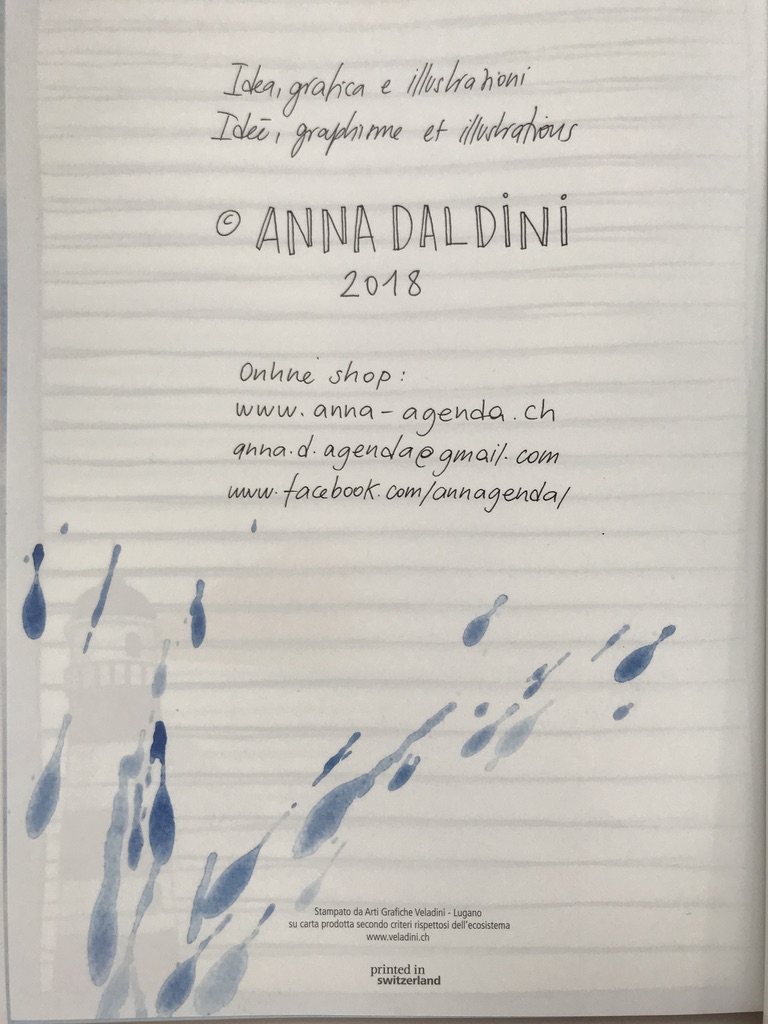 Idea, grafica e illustrazioni
Idée, graphisme et illustrations
© ANNA DALDINI
2018
Online shop:
www.anna-agenda.ch
anna.d.agenda@gmail.com
www.facebook.com/annagenda/
Stampato da Arti Grafiche Veladini - Lugano
su carta prodotta secondo criteri rispettosi dell'ecosistema
www.veladini.ch
printed in
switzerland